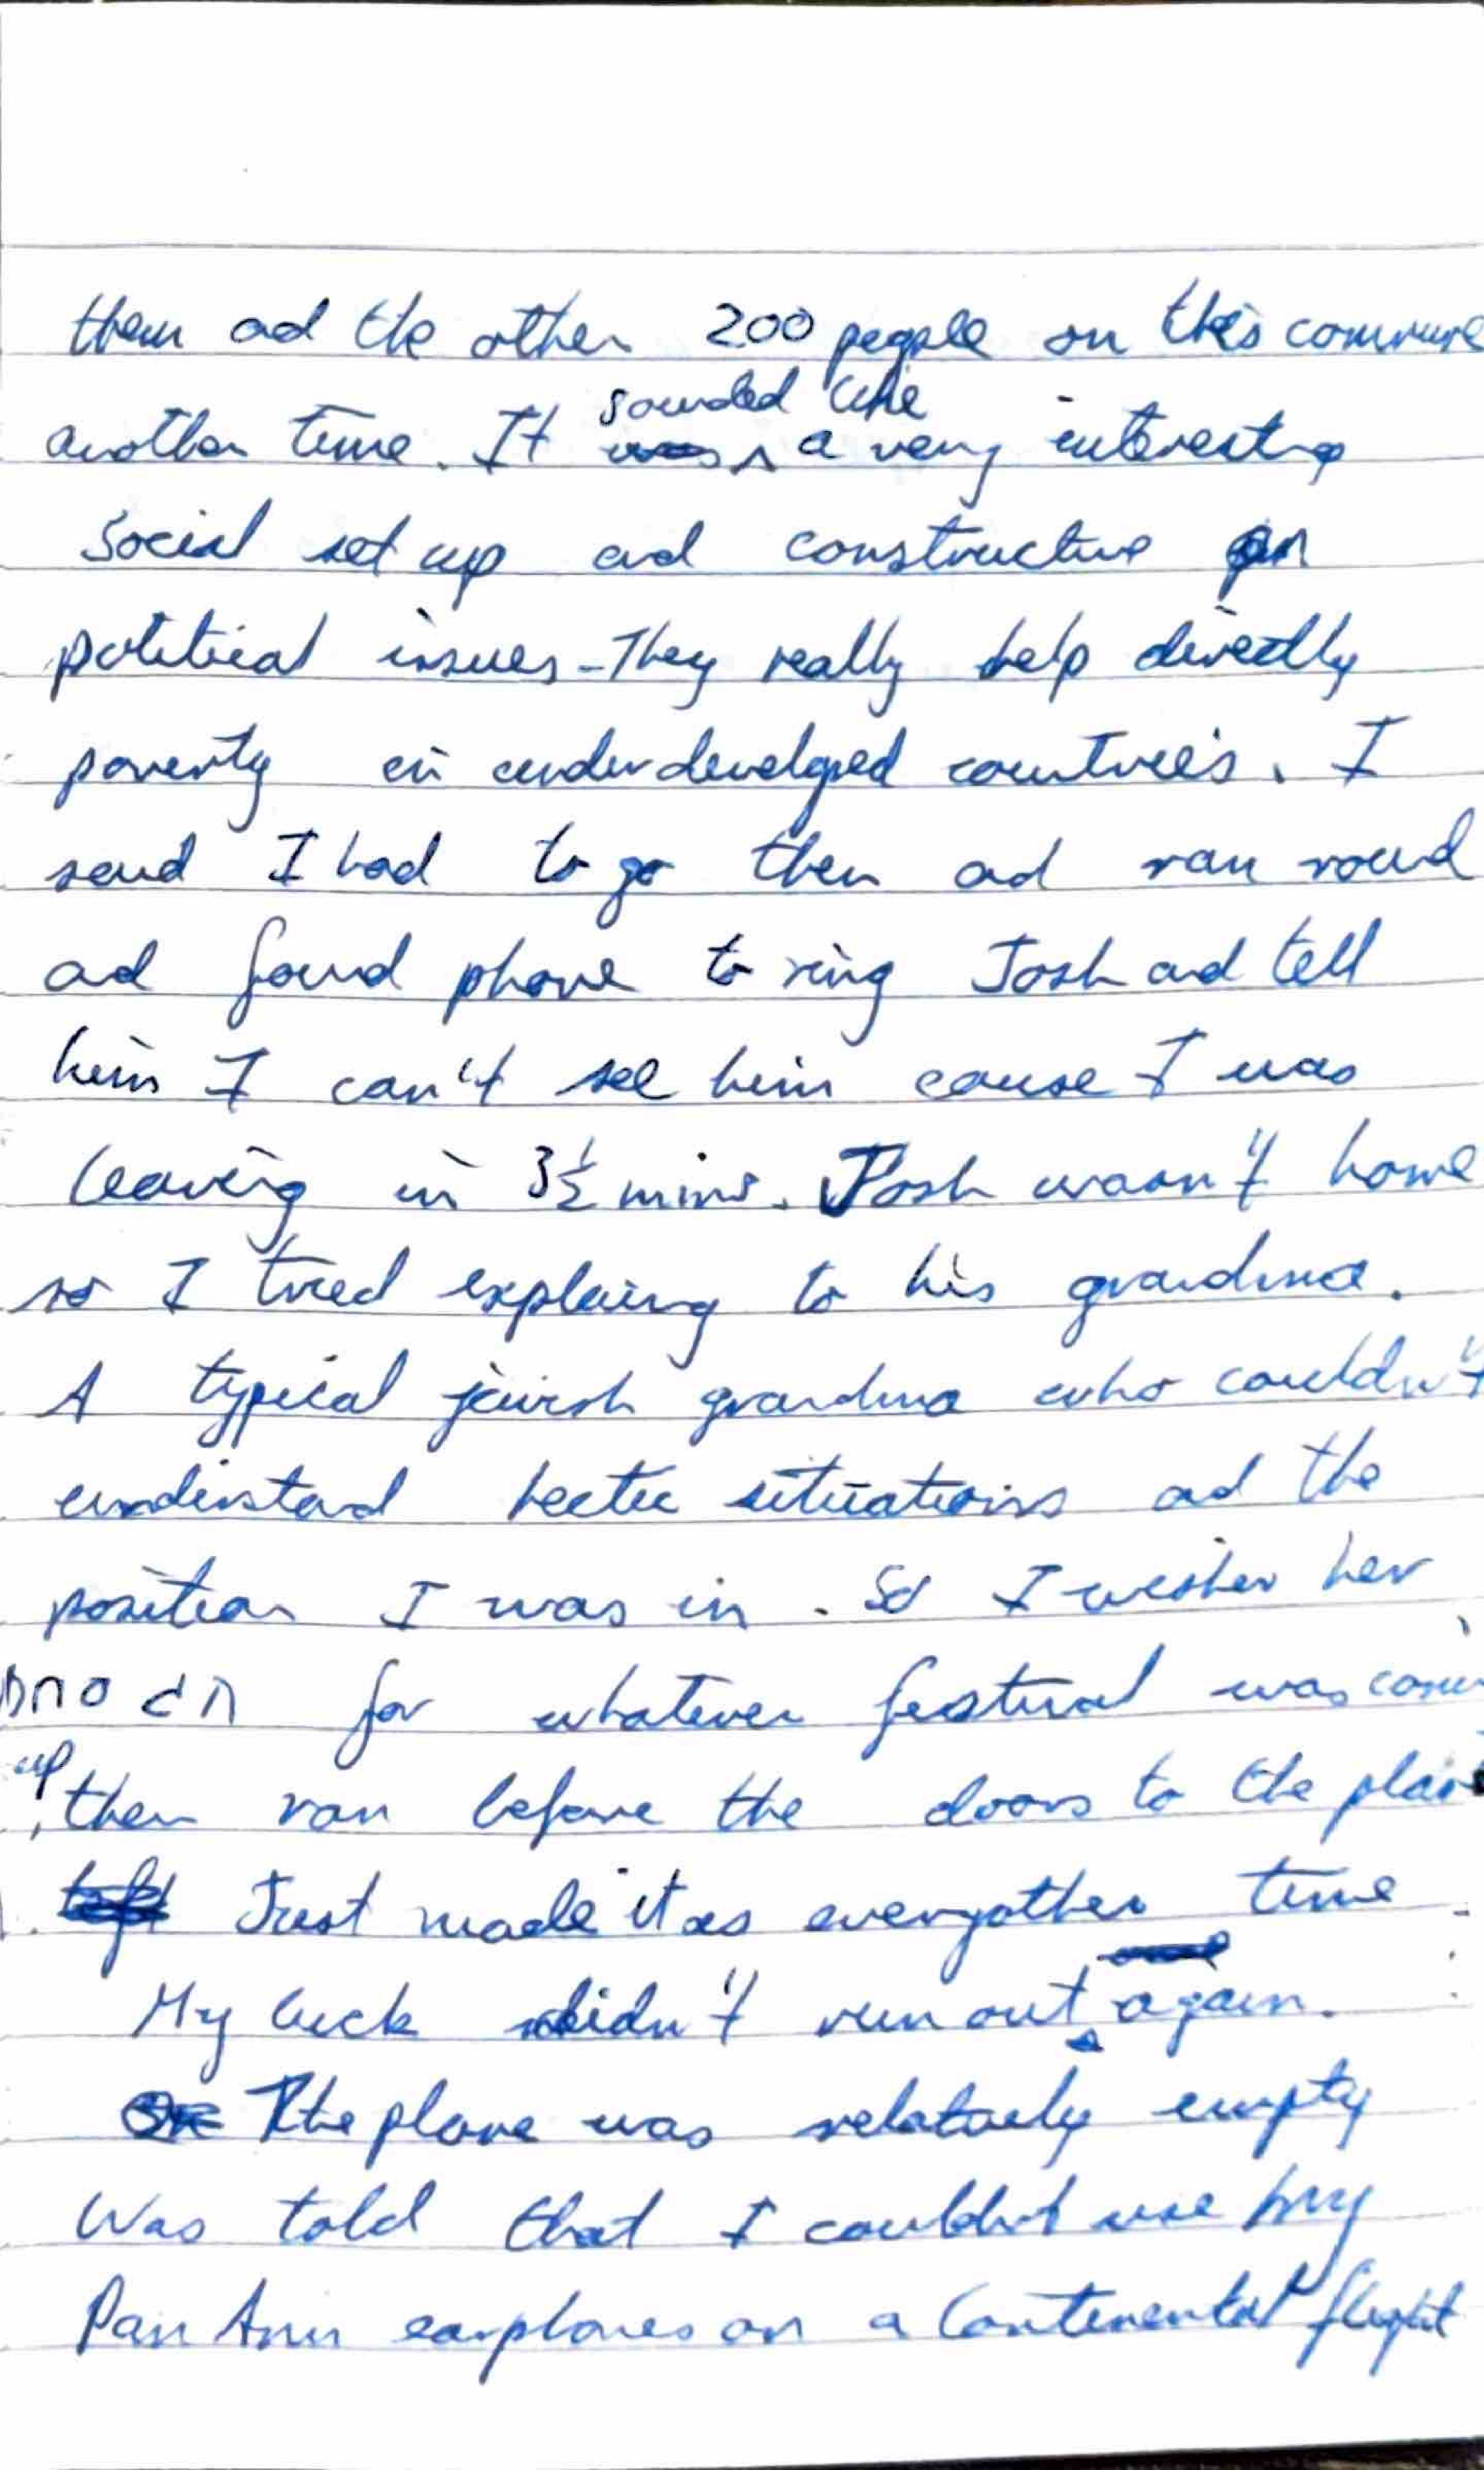 them ad the other 200 people on this commune
another time. It sounded like a very interesting
social set up ad constructive on
political issues - They really help directly
poverty in underdeveloped countries. I
said I had to go then ad ran round
ad found phone to ring Josh ad tell
him I can't see him cause I was
leaving in 3½ mins. Josh wasn't home
so I tried explaing to his grandma.
A typical jewish grandma who couldn't
understand hectic situations ad the
position I was in. So I wisher her
for whatever festival was
up, then ran before the doors to the
left Just made it as everyother time
My luck didn't run out again.
The plane was relatively empty
Was told that I couldn't use my
Pan Am earphones on a Continental flight